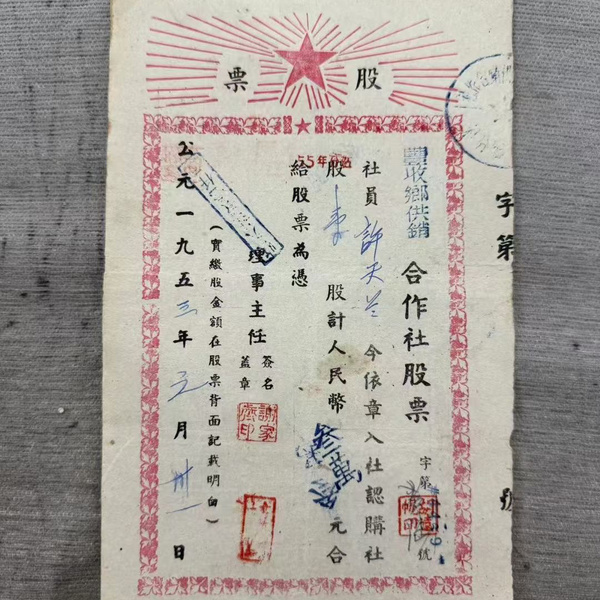 股票
豐收鄉供銷
合作社股票
字第 號
社員 許天 今依章入社認購社
股 股計人民幣 叁萬 元合
給股票為憑
理事主任
簽名
蓋章
(實繳股金額在股票背面記載明白)
公元一九五三年元月卅一日
55年
字第
號